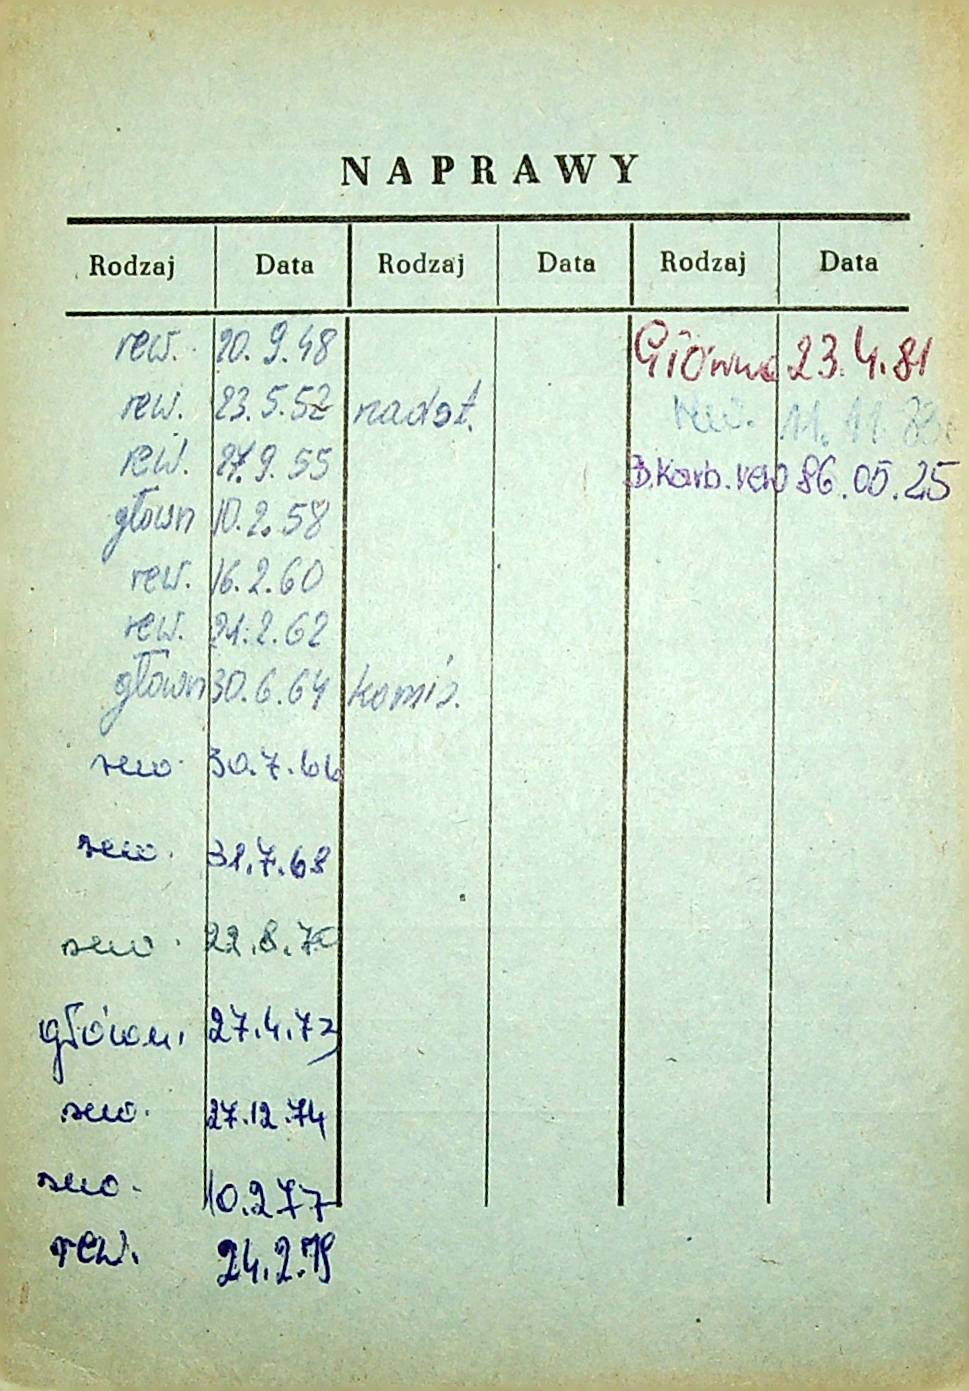 NAPRAWY
Rodzaj Data Rodzaj Data Rodzaj Data
rew. 20.9.48 Główna 23.4.81
rew. 23.5.52 nadst. rew. 11.11.83
rew. 27.9.55 B.Karb.rew 86.05.25
główn 10.2.58
rew. 16.2.60
rew. 21.2.62
główn 30.6.64 komis.
rew. 30.7.66
rew. 31.7.68
rew. 22.8.70
główn. 27.4.72
rew. 27.12.74
rew. 10.2.77
rew. 24.2.79